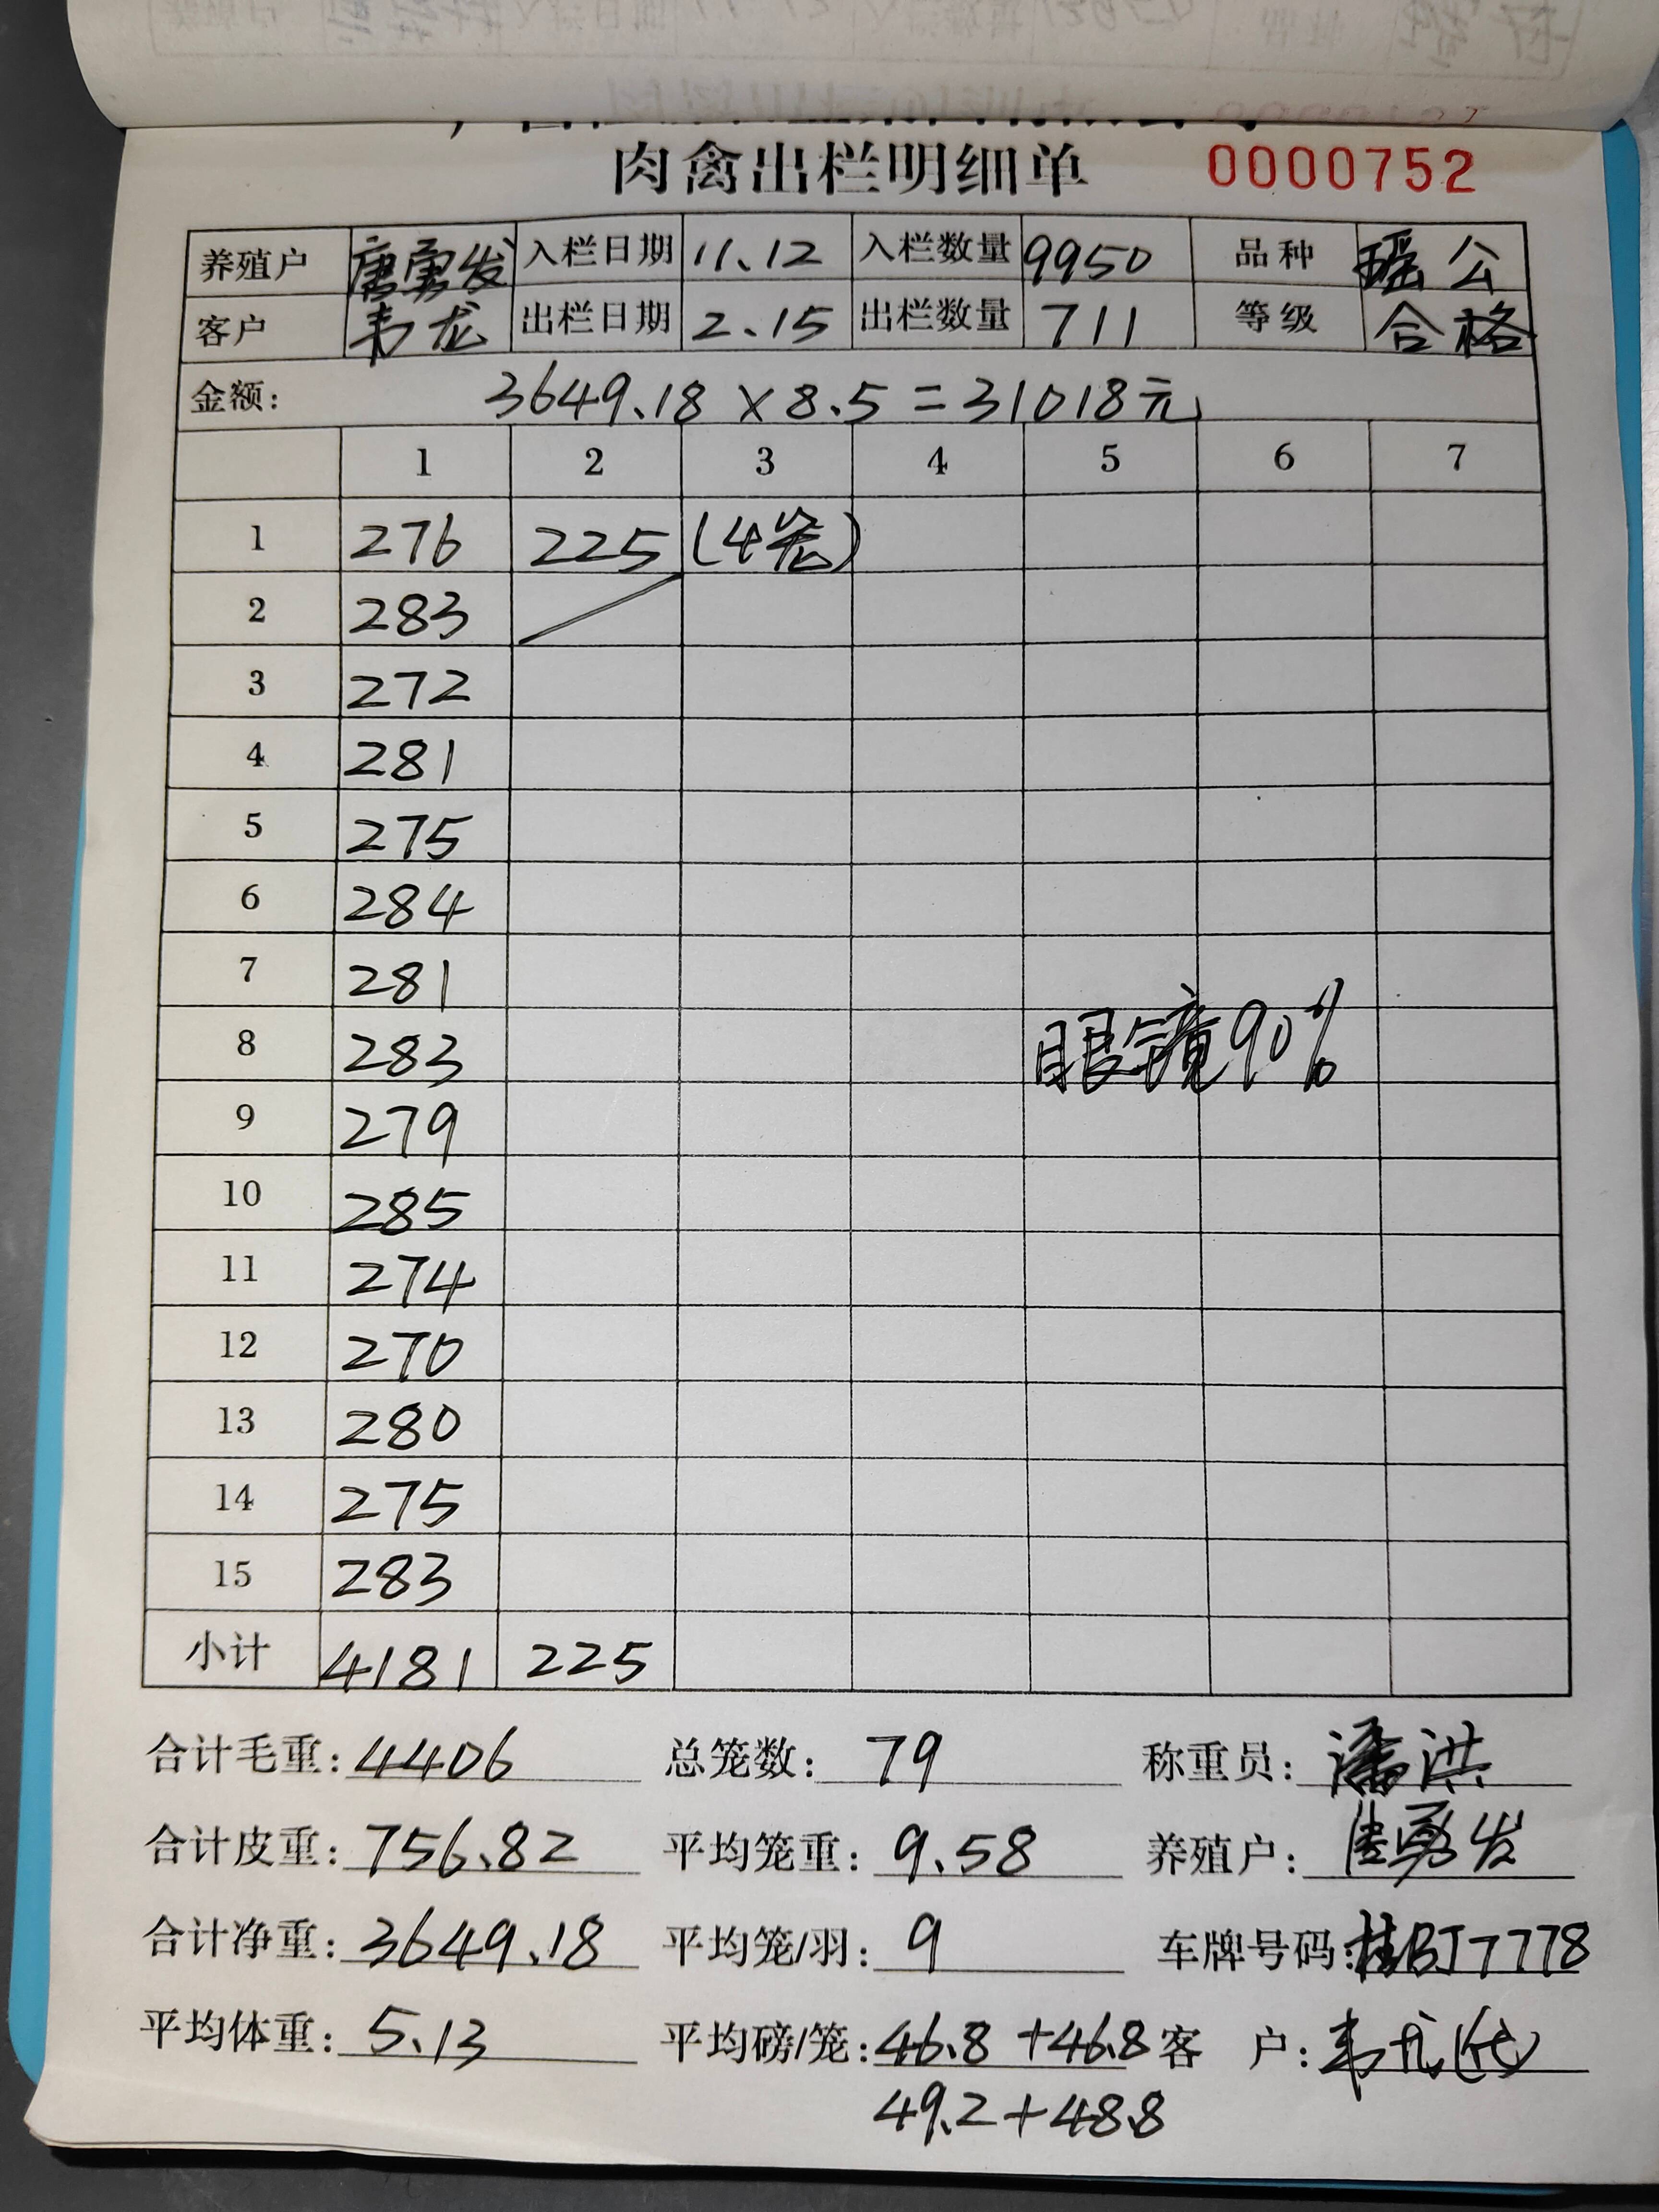 肉禽出栏明细单 0000752
养殖户 唐勇发 入栏日期 11.12 入栏数量 9950 品种 瑶公
客户 韦龙 出栏日期 2.15 出栏数量 711 等级 合格
金额: 3649.18 × 8.5 = 31018元
1 2 3 4 5 6 7
1 276 225 (4笼)
2 283
3 272
4 281
5 275
6 284
7 281
8 283 眼镜90%
9 279
10 285
11 274
12 270
13 280
14 275
15 283
小计 4181 225
合计毛重: 4406 总笼数: 79 称重员: 潘洪
合计皮重: 756.82 平均笼重: 9.58 养殖户: 唐勇发
合计净重: 3649.18 平均笼/羽: 9 车牌号码: 桂BJ7778
平均体重: 5.13 平均磅/笼: 46.8+46.8 客 户: 韦龙(代)
49.2+48.8